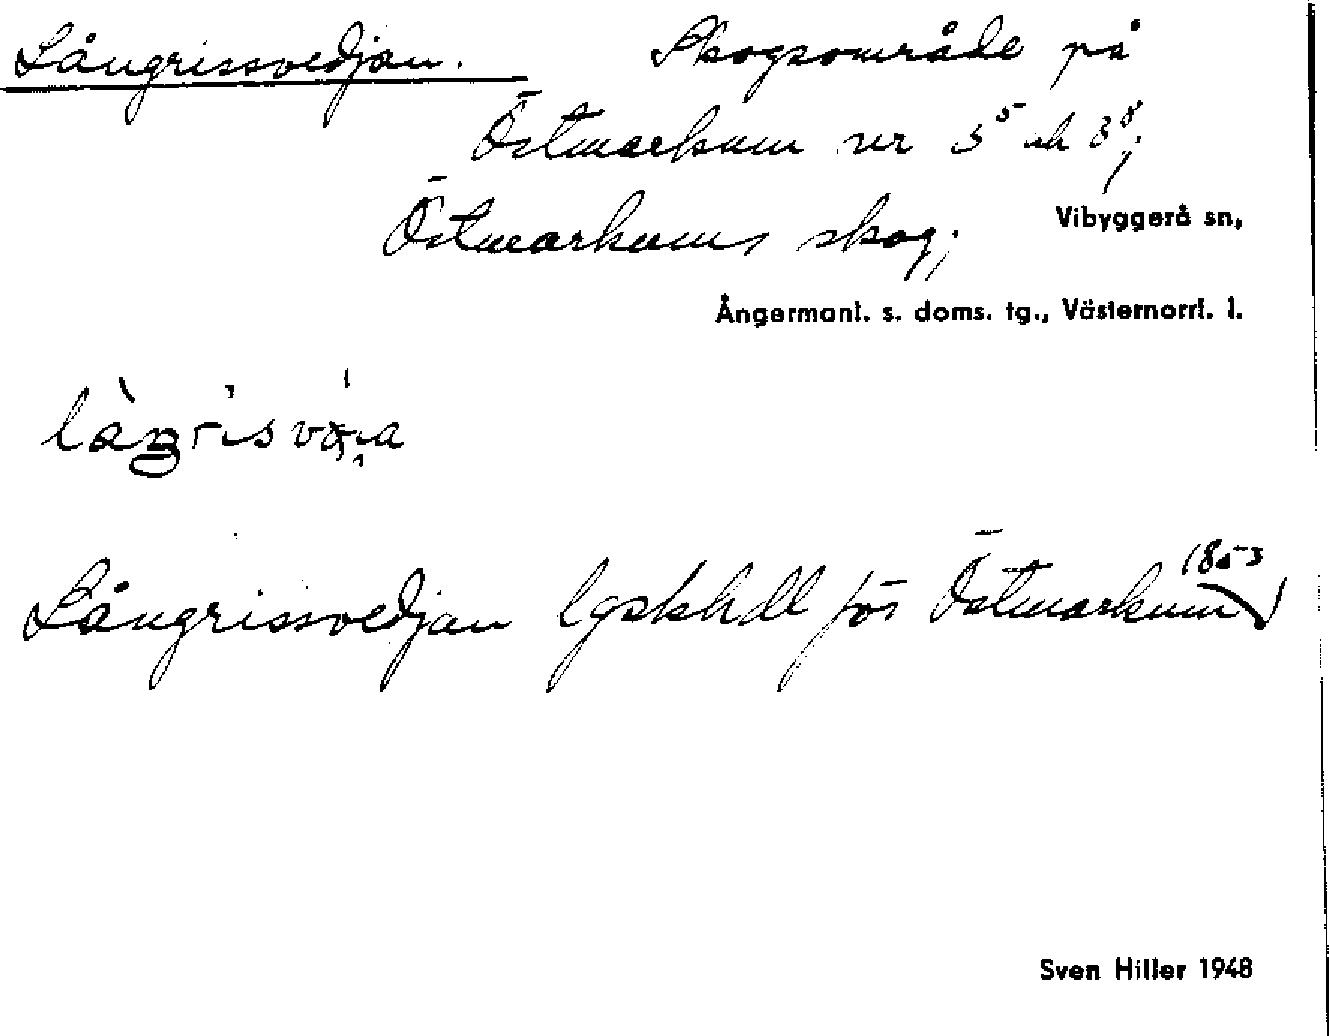 Långrissvedjan. Skogsområde på
Östmarkum nr 3⁵ och 3⁸;
Östmarkums skog; Vibyggerå sn,
Ångermanl. s. doms. tg., Västernorrl. l.
Långrissvedjan lgskhdl för Östmarkum 1853
Sven Hiller 1948